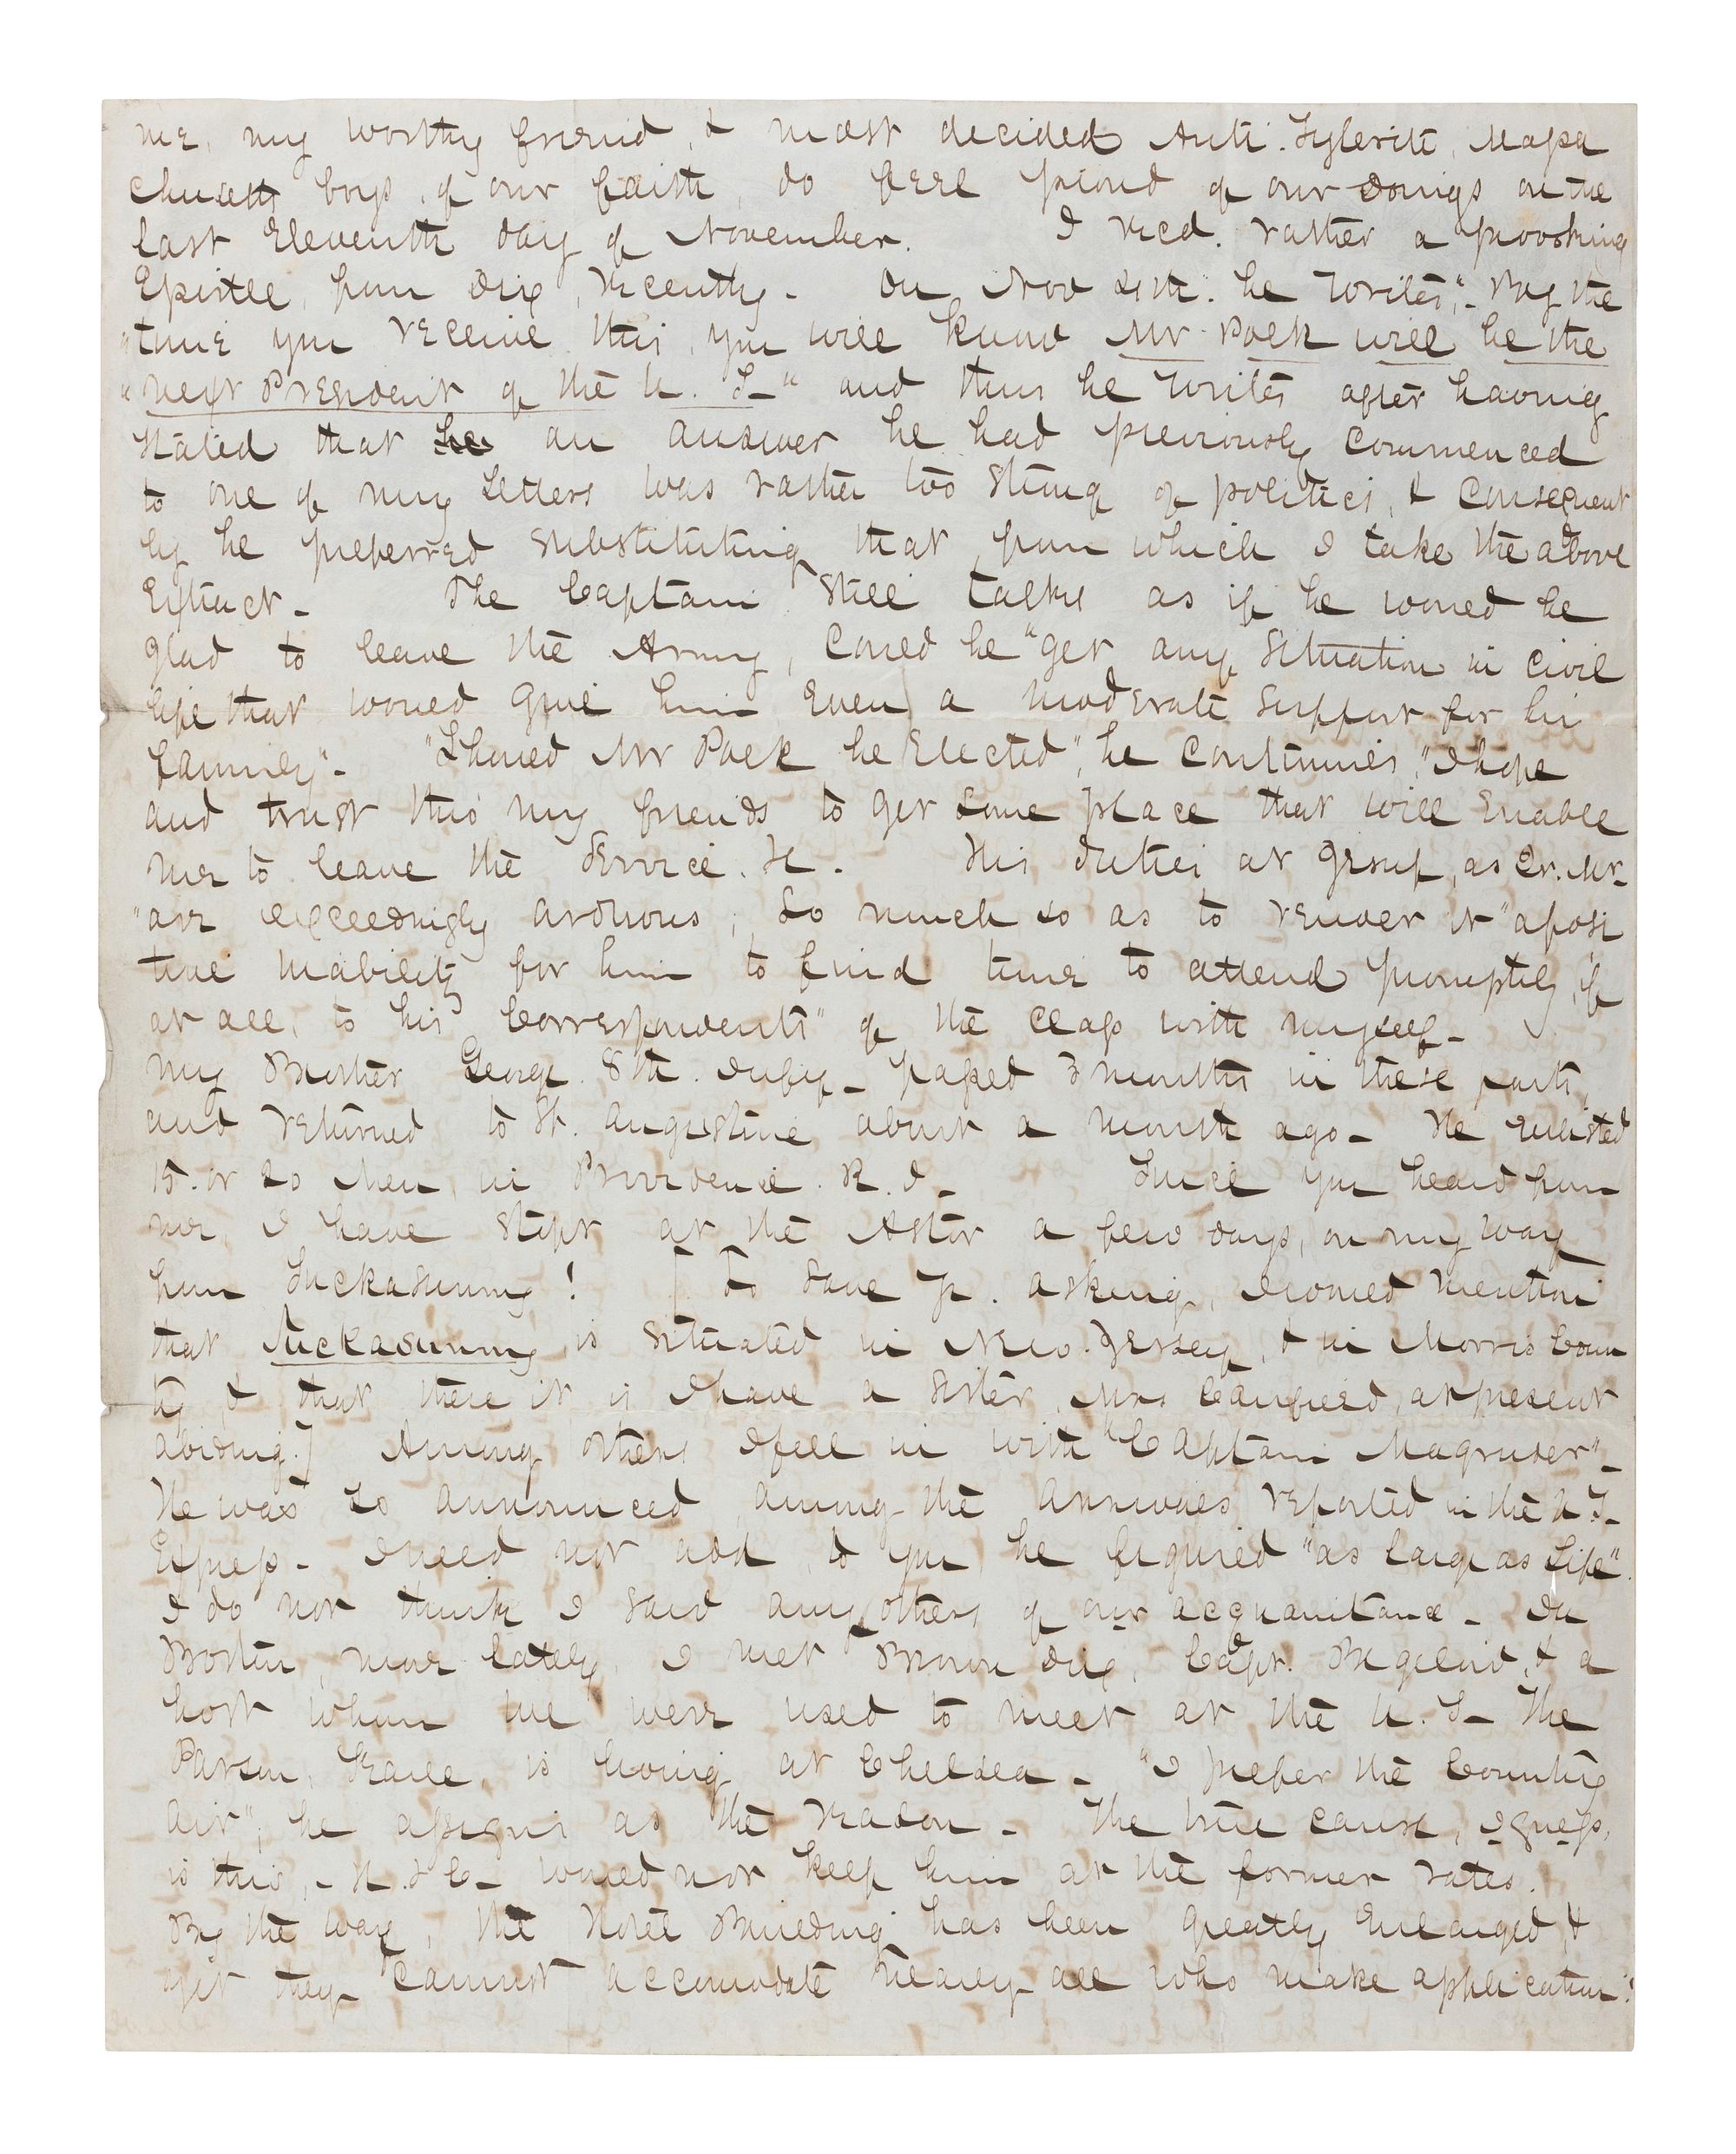 me, my worthy friend, & most decided Anti-Tylerite, Massa
chusetts boys, of our faith, do feel proud of our doings on the
last Eleventh day of November. I recd. rather a provoking
Epistle, from Dix, recently - On Nov he writes, "- By the
"time you receive this, you will know Mr Polk will be the
"next President of the U. S-" and thus he writes after having
stated that he an answer he had previously commenced
to one of my Letters was rather too strong of politics, & consequent
ly he preferred substituting that from which I take the above
Extract - The Captain still talks as if he would be
glad to leave the Army, could he "get any situation in civil
life that would give him even a moderate support for his
family"- "Should Mr Polk be Elected", he continues, "I hope
and trust thro' my friends to get some place that will enable
me to leave the Service. &. His duties at Jesup, as Qr. Mr-
"are exceedingly arduous; so much so as to render it "a posi
tive inability for him to find time to attend promptly, if
at all, to his Correspondents" of the class with myself -
My Brother George 8th. Infy - passed 3 months in these parts,
and returned to St. Augustine about a month ago - He enlisted
15. or 20 Men, in Providence. R. I - Since you heard from
me, I have stopt at the Astor a few days, on my way
from Suckasunny! [To save yr. asking, I would mention
that Suckasunny is situated in New. Jersey, & in Morris Coun
ty, & that there it is I have a Sister, Mrs Canfield, at present
abiding.] Among others I fell in with "Captain Magruder"-
He was so announced among the arrivals reported in the N.Y-
Express - I need not add, to you, he figured "as large as Life".
I do not think I saw any others of our acquaintance - In
Boston, more lately, I met Brown Dix, Capt. Bigelow, & a
host whom we were used to meet at the U. S- The
Parson, is living at Chelsea - "I prefer the Country
Air", he assigns as the reason - The true cause, I guess,
is this, - H. & C - would not keep him at the former rates.
By the way, the Hotel Building has been greatly enlarged, &
yet they "cannot accomodate nearly all who make application"!